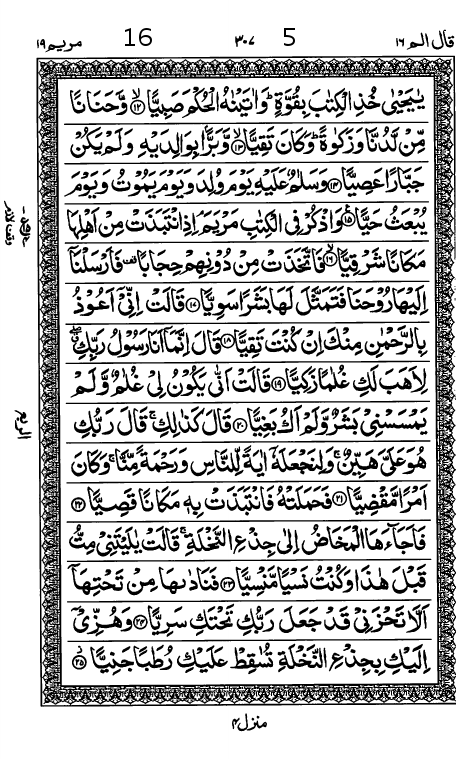 قال الم ١٦ 5 ٣٠٧ 16 مريم ١٩
يٰيَحْيٰى خُذِ الْكِتٰبَ بِقُوَّةٍ ؕ وَاٰتَيْنٰهُ الْحُكْمَ صَبِيًّا ۙ﴿۱۲﴾ وَّحَنَانًا
مِّنْ لَّدُنَّا وَزَكٰوةً ؕ وَكَانَ تَقِيًّا ۙ﴿۱۳﴾ وَّبَرًّۢا بِوَالِدَيْهِ وَلَمْ يَكُنْ
جَبَّارًا عَصِيًّا ﴿۱۴﴾ وَسَلٰمٌ عَلَيْهِ يَوْمَ وُلِدَ وَيَوْمَ يَمُوْتُ وَيَوْمَ
يُبْعَثُ حَيًّا ﴿۱۵﴾ وَاذْكُرْ فِى الْكِتٰبِ مَرْيَمَ ۘ اِذِ انْتَبَذَتْ مِنْ اَهْلِهَا
مَكَانًا شَرْقِيًّا ۙ﴿۱۶﴾ فَاتَّخَذَتْ مِنْ دُوْنِهِمْ حِجَابًا ۪ فَاَرْسَلْنَاۤ
اِلَيْهَا رُوْحَنَا فَتَمَثَّلَ لَهَا بَشَرًا سَوِيًّا ﴿۱۷﴾ قَالَتْ اِنِّىْۤ اَعُوْذُ
بِالرَّحْمٰنِ مِنْكَ اِنْ كُنْتَ تَقِيًّا ﴿۱۸﴾ قَالَ اِنَّمَاۤ اَنَا رَسُوْلُ رَبِّكِ ۖ
لِاَهَبَ لَكِ غُلٰمًا زَكِيًّا ﴿۱۹﴾ قَالَتْ اَنّٰى يَكُوْنُ لِىْ غُلٰمٌ وَّلَمْ
يَمْسَسْنِىْ بَشَرٌ وَّلَمْ اَكُ بَغِيًّا ﴿۲۰﴾ قَالَ كَذٰلِكِ ۚ قَالَ رَبُّكِ
هُوَ عَلَىَّ هَيِّنٌ ۚ وَلِنَجْعَلَهٗۤ اٰيَةً لِّلنَّاسِ وَرَحْمَةً مِّنَّا ۚ وَكَانَ
اَمْرًا مَّقْضِيًّا ﴿۲۱﴾ فَحَمَلَتْهُ فَانْتَبَذَتْ بِهٖ مَكَانًا قَصِيًّا ﴿۲۲﴾
فَاَجَآءَهَا الْمَخَاضُ اِلٰى جِذْعِ النَّخْلَةِ ۚ قَالَتْ يٰلَيْتَنِىْ مِتُّ
قَبْلَ هٰذَا وَكُنْتُ نَسْيًا مَّنْسِيًّا ﴿۲۳﴾ فَنَادٰىهَا مِنْ تَحْتِهَاۤ
اَلَّا تَحْزَنِىْ قَدْ جَعَلَ رَبُّكِ تَحْتَكِ سَرِيًّا ﴿۲۴﴾ وَهُزِّىْۤ
اِلَيْكِ بِجِذْعِ النَّخْلَةِ تُسٰقِطْ عَلَيْكِ رُطَبًا جَنِيًّا ۫﴿۲۵﴾
الربع
منزل ۴